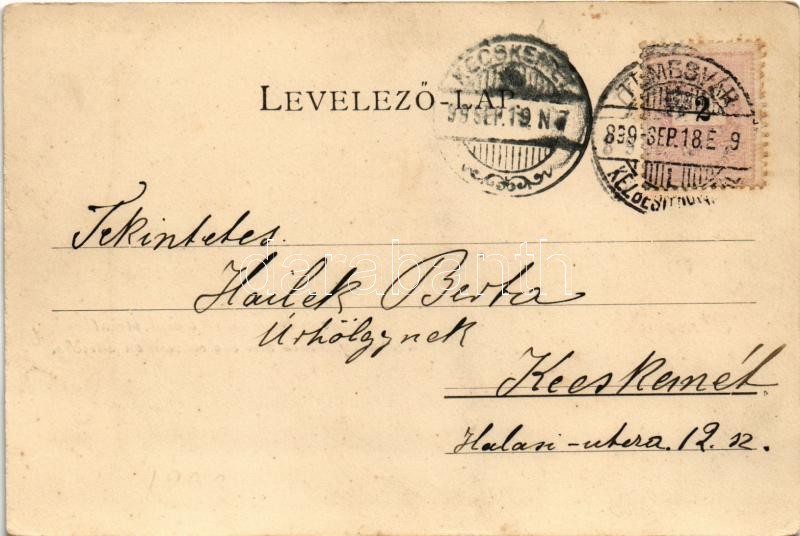 LEVELEZŐ-LAP
KECSKEMÉT
99 SEP. 19. N 7
TEMESVÁR
2
899 SEP. 18. E 9
Tekintetes
Hailek Berta
Úrhölgynek
Kecskemét
Halasi-utcza. 12. sz.
darabanth